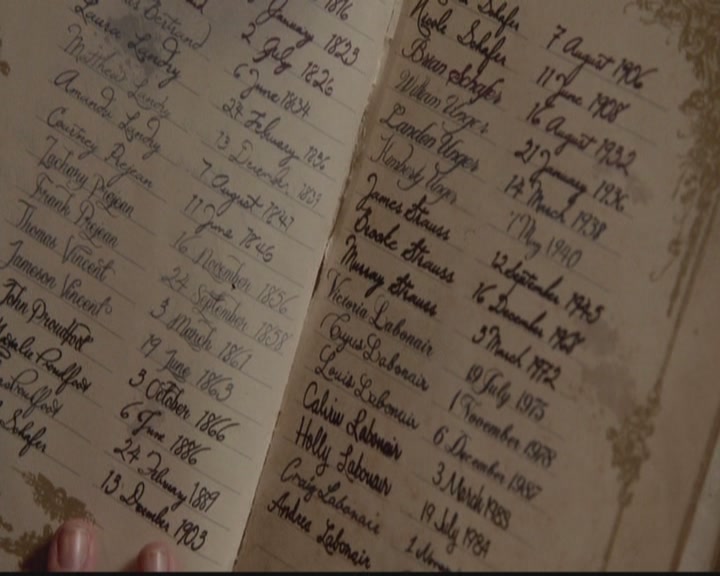 1816
Bertrand January 1823
Laura Landry 2 July 1826
Matthew Landry 6 June 1834
Amanda Landry 24 February 1836
Courtney Prejean 13 December 1839
Zachary Prejean 7 August 1843
Frank Prejean 11 June 1846
Thomas Vincent 16 November 1856
Jameson Vincent 24 September 1858
John Proudfoot 3 March 1861
Proudfoot 19 June 1863
Proudfoot 3 October 1866
Schafer 6 June 1886
24 February 1889
13 December 1903
Schafer
Nicole Schafer 7 August 1906
Brian Schafer 11 June 1908
Wilson Unger 16 August 1932
Landon Unger 21 January 1936
Kimberly Unger 14 March 1938
James Strauss May 1940
Brooke Strauss 12 September 1945
Murray Strauss 16 December 1968
Victoria Labonair 3 March 1972
Cyrus Labonair 19 July 1975
Louis Labonair 1 November 1978
Labonair 6 December 1982
Holly Labonair 3 March 1983
Craig Labonair 19 July 1984
Andrea Labonair